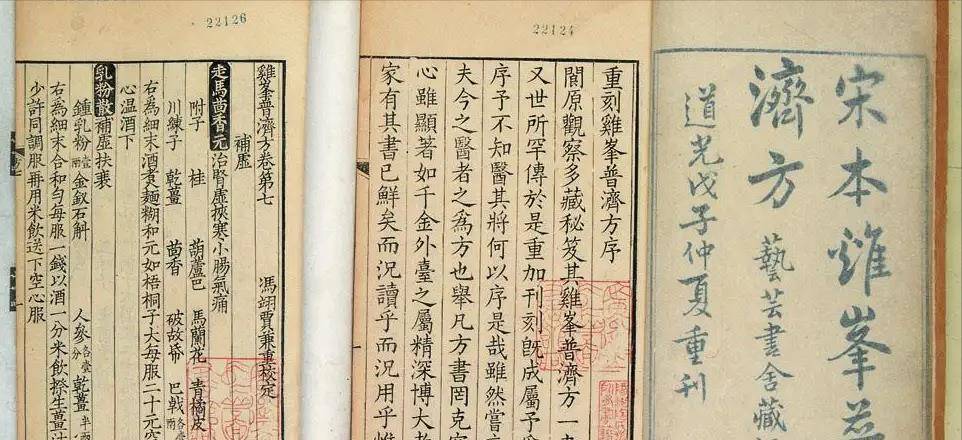 宋本雞峯普
濟方
藝芸書舍藏
道光戊子仲夏重刊
22124
重刻雞峯普濟方序
閬原觀察多藏秘笈其雞峯普濟方一
又世所罕傳於是重加刊刻旣成屬予
序予不知醫其將何以序是哉雖然嘗
夫今之醫者之爲方也舉凡方書罔克
心雖顯著如千金外臺之屬精深博大
家有其書已鮮矣而況讀乎而況用乎惟
22126
雞峯普濟方卷第七 馮翊賈兼重校定
補虛
走馬茴香元治腎虛挾寒小腸氣痛
附子 桂 葫蘆巴 馬蘭花 青橘皮
川練子 乾薑 茴香 破故紙 巴戟各壹兩
右爲細末酒煮麵糊和元如梧桐子大每服二十元空
心溫酒下
乳粉散補虛扶衰
鍾乳粉壹兩 金釵石斛 人參各壹分 乾薑半兩
右爲細末合和勻每服一錢以酒一分米飲撩生薑汁
少許同調服再用米飲送下空心服